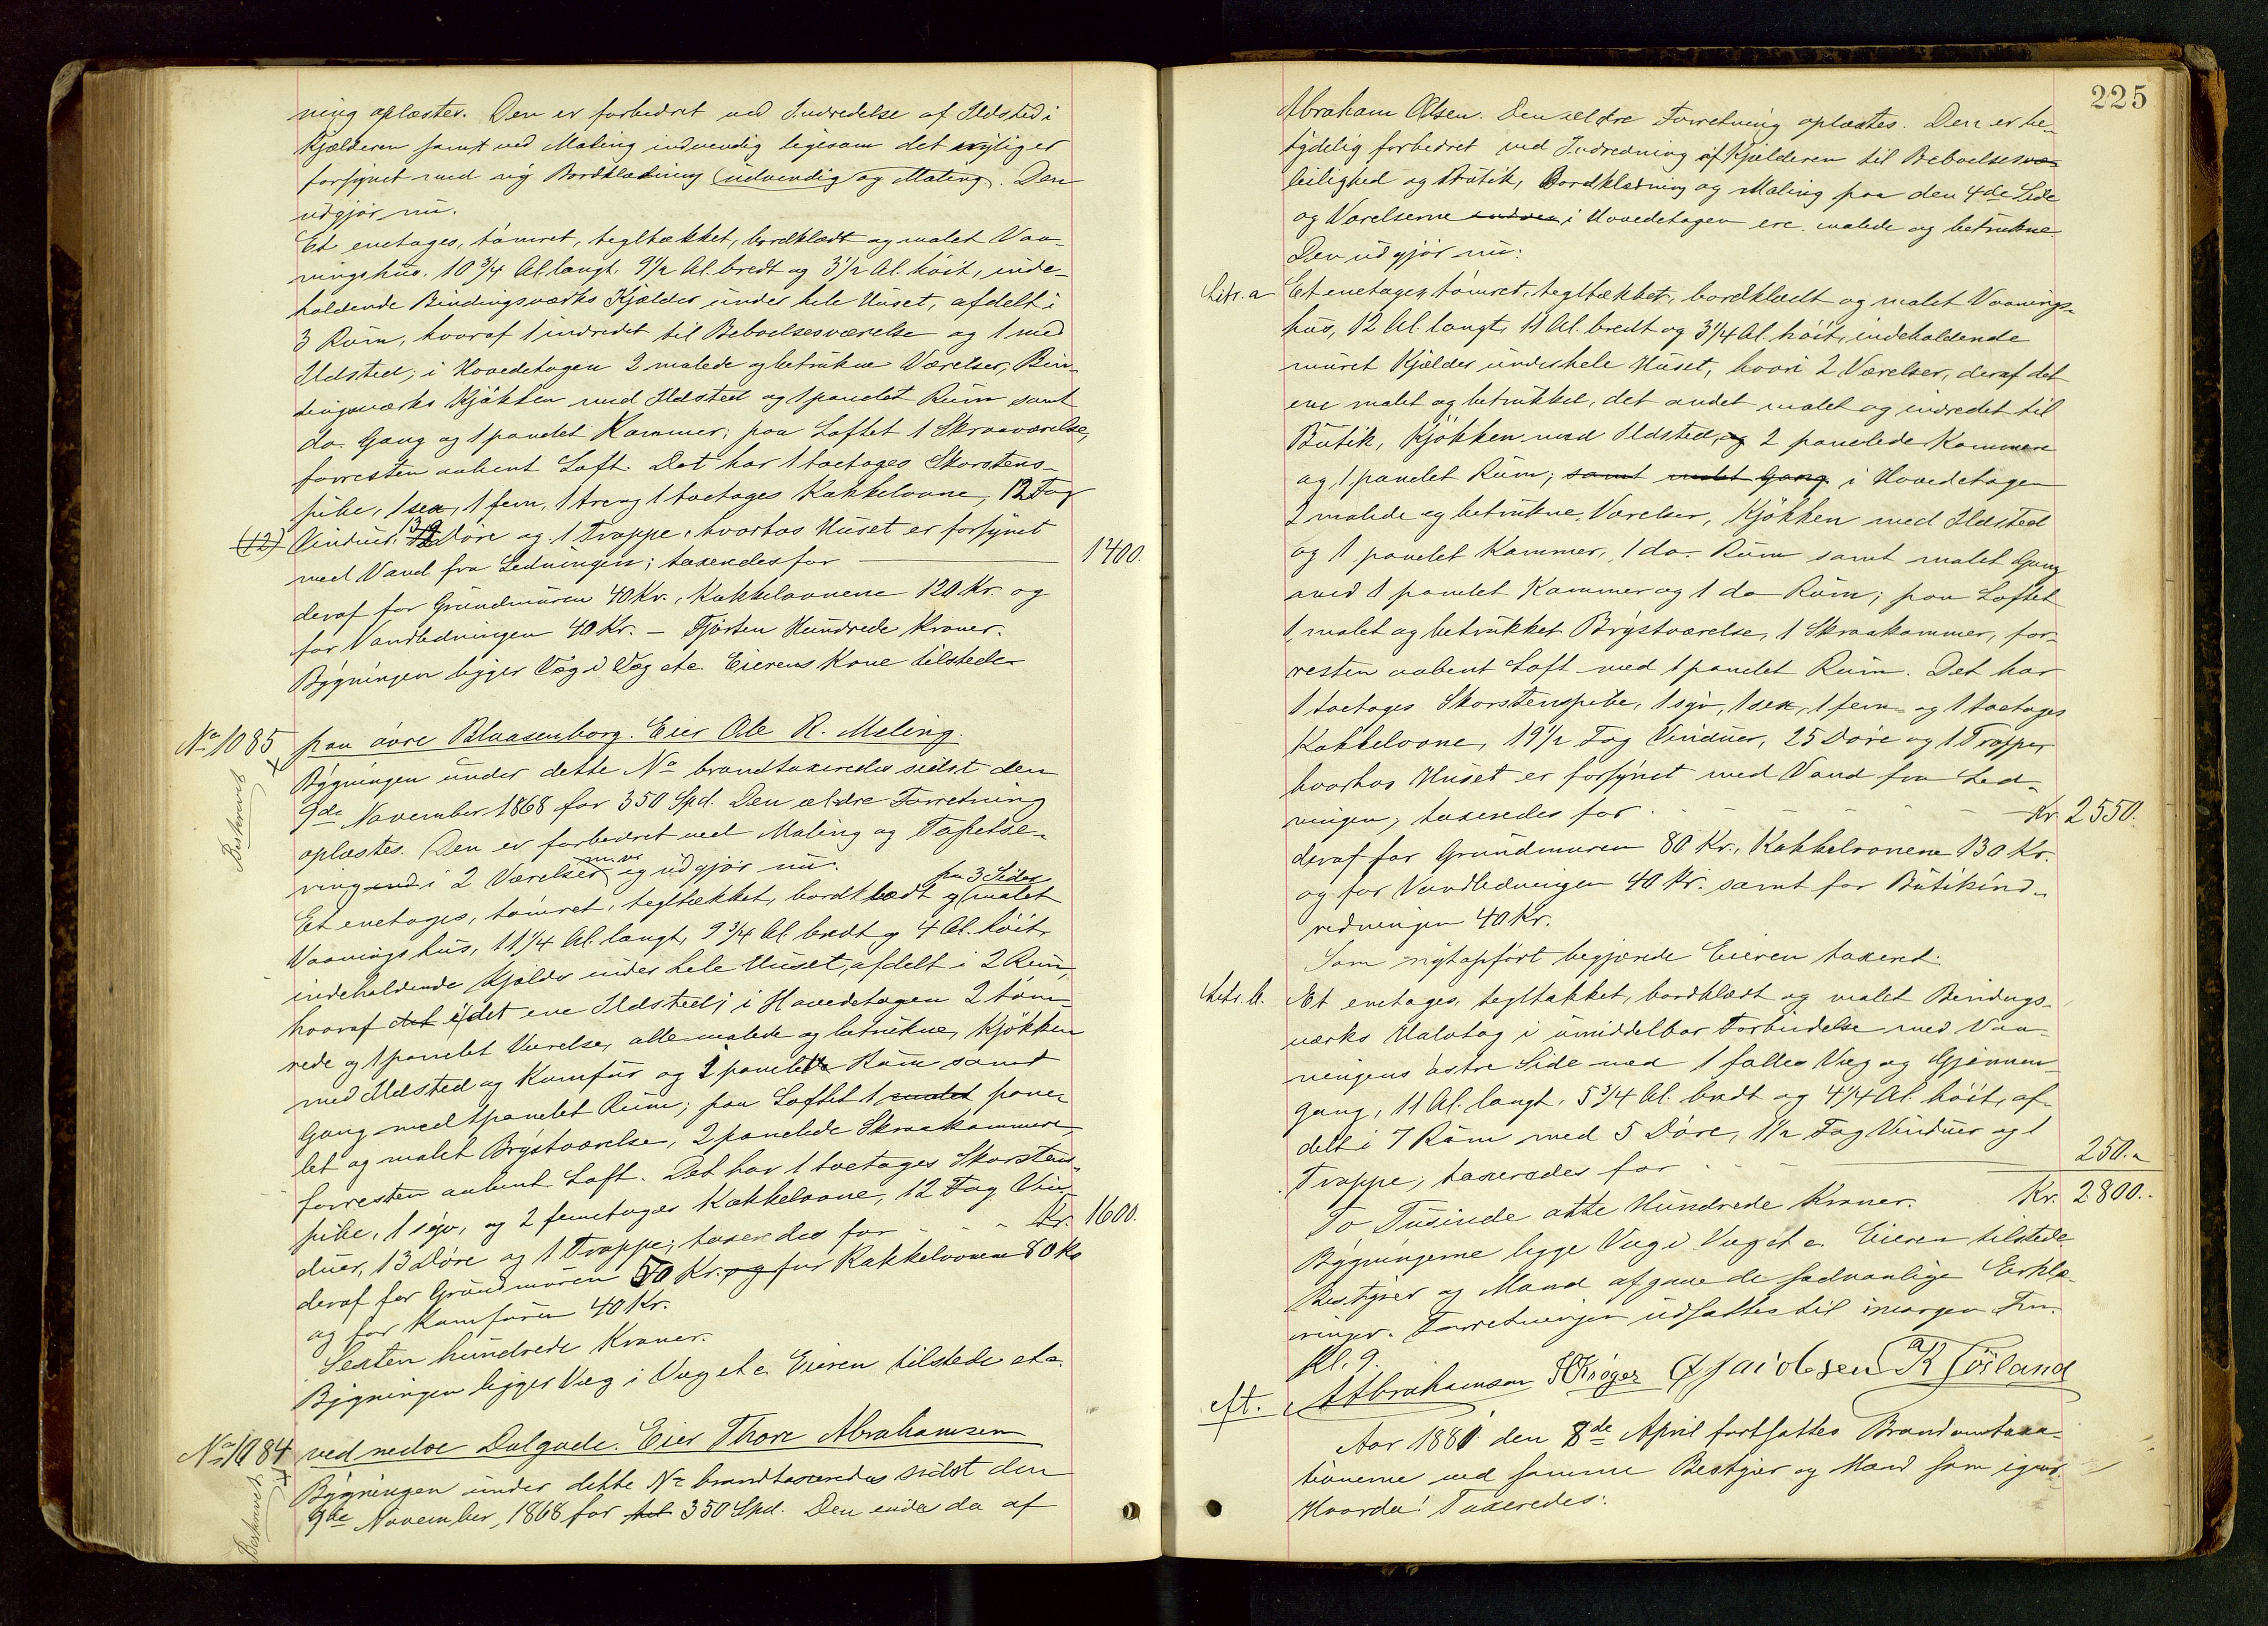 ning oplæstes. Den er forbedret ved Indredelse af Ildsted i
Kjælderen samt ved Maling indvendig ligesom det nylig er
forsynet med ny Bordklædning (udvendig og Maling). Den
udgjør nu.
Et enetages, tømret, tegltækket, bordklædt og malet Vaa-
ningshus. 10 3/4 Al. langt, 9 1/2 Al. bredt og 3 1/2 Al. høit, inde-
holdende Bindingsværks Kjælder under hele Huset, afdelt i
3 Rum, hvoraf 1 indredet til Beboelsesværelse og 1 med
Ildsted; i Hovedetagen 2 malede og betrukne Værelser, Bin-
dingsværks Kjøkken med Ildsted og 1 panelet Rum samt
do. Gang og 1 panelet Kammer; paa Loftet 1 Skraaværelse,
forresten aabent Loft. Det har 1 toetages Skorstens-
pibe, 1 sex, 1 fem, 1 tre og 1 toetages Kakkelovne, 12 Fag
(12) Vinduer, 13 Døre og 1 Trappe, hvorhos Huset er forsynet
med Vand fra Ledningen; taxeredes for 1400.
deraf for Grundmuren 40 Kr., Kakkelovnene 120 Kr. og
for Vandledningen 40 Kr. – Fjorten Hundrede Kroner.
Bygningen ligger Væg i Væg etc. Eierens Kone tilstede
No 1085 paa øvre Blaasenborg. Eier Ole R. Meling.
Beskrevet
Bygningen under dette No brandtaxeredes sidst den
9de November 1868 for 350 Spd. Den ældre Forretning
oplæstes. Den er forbedret ved Maling og Tapetse-
ring i 2 Værelser m. v. og udgjør nu.
paa 3 Sider
Et enetages, tømret, tegltækket, bordklædt og (malet
Vaaningshus, 11 1/4 Al. langt, 9 3/4 Al. bredt og 4 Al. høit,
indeholdende Kjælder under hele Huset, afdelt i 2 Rum,
hvoraf det i det ene Ildsted; i Hovedetagen 2 tøm-
rede og 1 panelet Værelse, alle malede og betrukne, Kjøkken
med Ildsted og Komfur og 1 panelet Rum samt
Gang med 1 panelet Rum; paa Loftet 1 malet pane-
let og malet Brystværelse, 2 panelede Skraakammere,
forresten aabent Loft. Det har 1 toetages Skorstens-
pibe, 1 syv, og 2 femetages Kakkelovne, 12 Fag Vin-
duer, 13 Døre og 1 Trappe; taxeredes for Kr. 1600.
deraf for Grundmuren 50 Kr. og for Kakkelovnene 80 Kr
og for Komfuren 40 Kr.
Sexten hundrede Kroner.
Bygningen ligger Væg i Væg etc. Eieren tilstede etc.
No 1084 ved nedre Dalgade. Eier Thore Abrahamsen
Beskrevet
Bygningen under dette No brandtaxeredes sidst den
9de November 1868 for 350 Spd. Den eides da af
225
Abraham Olsen. Den ældre Forretning oplæstes. Den er be-
tydelig forbedret ved Indredning af Kjælderen til Beboelses
leilighed og Butik, Bordklædning og Maling paa den 4de Side
og Værelserne i Hovedetagen ere malede og betrukne
Den udgjør nu:
Litr. a Et enetages, tømret, tegltækket, bordklædt og malet Vaanings-
hus, 12 Al. langt, 11 Al. bredt og 3 1/4 Al. høit, indeholdende
muret Kjælder under hele Huset, hvori 2 Værelser, deraf det
ene malet og betrukket, det andet malet og indredet til
Butik, Kjøkken med Ildsted, og 2 panelede Kammere
og 1 panelet Rum; samt malet Gang i Hovedetagen
2 malede og betrukne Værelser, Kjøkken med Ildsted
og 1 panelet Kammer, 1 do. Rum samt malet Gang
med 1 panelet Kammer og 1 do Rum; paa Loftet
1 malet og betrukket Brystværelse, 1 Skraakammer, for-
resten aabent Loft med 1 panelet Rum. Det har
1 toetages Skorstenspibe, 1 syv, 1 sex, 1 fem og 1 toetages
Kakkelovne, 19 1/2 Fag Vinduer, 25 Døre og 1 Trappe,
hvorhos Huset er forsynet med Vand fra Led-
ningen; taxeredes for Kr 2550.
deraf for Grundmuren 80 Kr., Kakkelovnene 130 Kr.
og for Vandledningen 40 Kr. samt for Butikind-
redningen 40 Kr.
Som nyt opført begjærede Eieren taxeret.
Litr. b. Et enetages, tegltækket, bordklædt og malet Bindings-
værks Halvtag i umiddelbar Forbindelse med Vaa-
ningens østre Side med 1 fælles Væg og Gjennem-
gang, 11 Al. langt, 5 3/4 Al. bredt og 4 1/4 Al. høit, af-
delt i 7 Rum med 5 Døre, 1 1/2 Fag Vinduer og 1
Trappe; taxeredes for 250.
To Tusinde otte Hundrede Kroner. Kr. 2800.
Bygningerne ligge Væg i Væg etc. Eieren tilstede
Bestyrer og Mænd afgave de sædvanlige Erklæ-
ringer. Forretningen udsattes til imorgen Fm.
Kl. 9.
eft. A Abrahamsen K Tørland
Aar 1881 den 8de April fortsattes Brandomtaxa-
tionerne ved samme Bestyrer og Mænd som igaar.
Hvorda! Taxeredes: